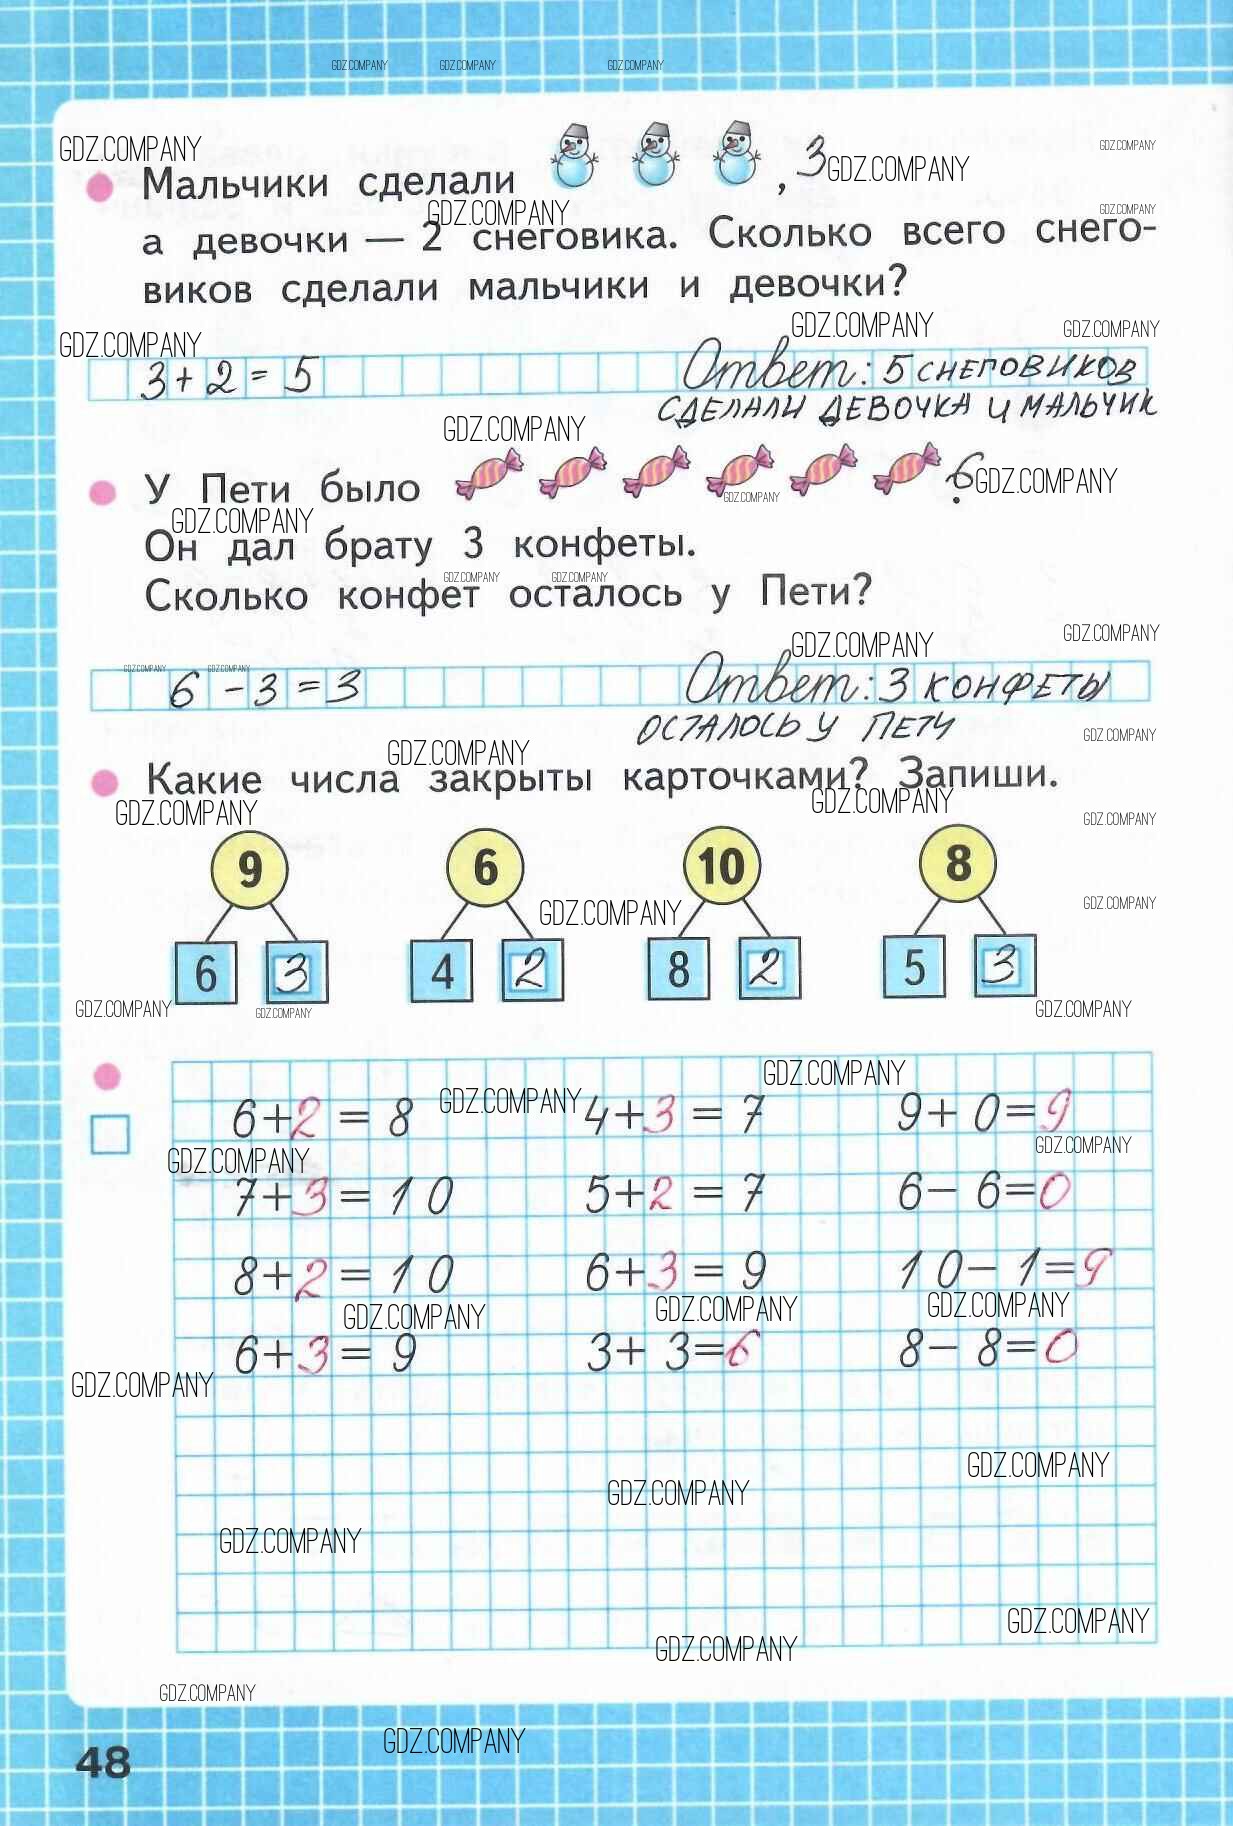 GDZ.COMPANY GDZ.COMPANY GDZ.COMPANY
GDZ.COMPANY GDZ.COMPANY
Мальчики сделали , 3 GDZ.COMPANY
GDZ.COMPANY GDZ.COMPANY
а девочки — 2 снеговика. Сколько всего снего-
виков сделали мальчики и девочки?
GDZ.COMPANY GDZ.COMPANY
GDZ.COMPANY
3 + 2 = 5 Ответ: 5 СНЕГОВИКОВ
СДЕЛАЛИ ДЕВОЧКА И МАЛЬЧИК
GDZ.COMPANY
У Пети было . 6 GDZ.COMPANY
GDZ.COMPANY
GDZ.COMPANY
Он дал брату 3 конфеты.
GDZ.COMPANY GDZ.COMPANY
Сколько конфет осталось у Пети?
GDZ.COMPANY GDZ.COMPANY
GDZ.COMPANY GDZ.COMPANY
6 - 3 = 3 Ответ: 3 КОНФЕТЫ
ОСТАЛОСЬ У ПЕТИ
GDZ.COMPANY
GDZ.COMPANY
Какие числа закрыты карточками? Запиши.
GDZ.COMPANY GDZ.COMPANY GDZ.COMPANY
9 6 10 8
GDZ.COMPANY GDZ.COMPANY
6 3 4 2 8 2 5 3
GDZ.COMPANY GDZ.COMPANY GDZ.COMPANY
GDZ.COMPANY
GDZ.COMPANY
6+2 = 8 4+3 = 7 9+ 0=9
GDZ.COMPANY GDZ.COMPANY
7+3 = 1 0 5+2 = 7 6− 6=0
8+2 = 1 0 6+3 = 9 1 0− 1=9
GDZ.COMPANY GDZ.COMPANY GDZ.COMPANY
6+3 = 9 3+ 3=6 8− 8=0
GDZ.COMPANY
GDZ.COMPANY
GDZ.COMPANY
GDZ.COMPANY
GDZ.COMPANY
GDZ.COMPANY
GDZ.COMPANY
GDZ.COMPANY
48